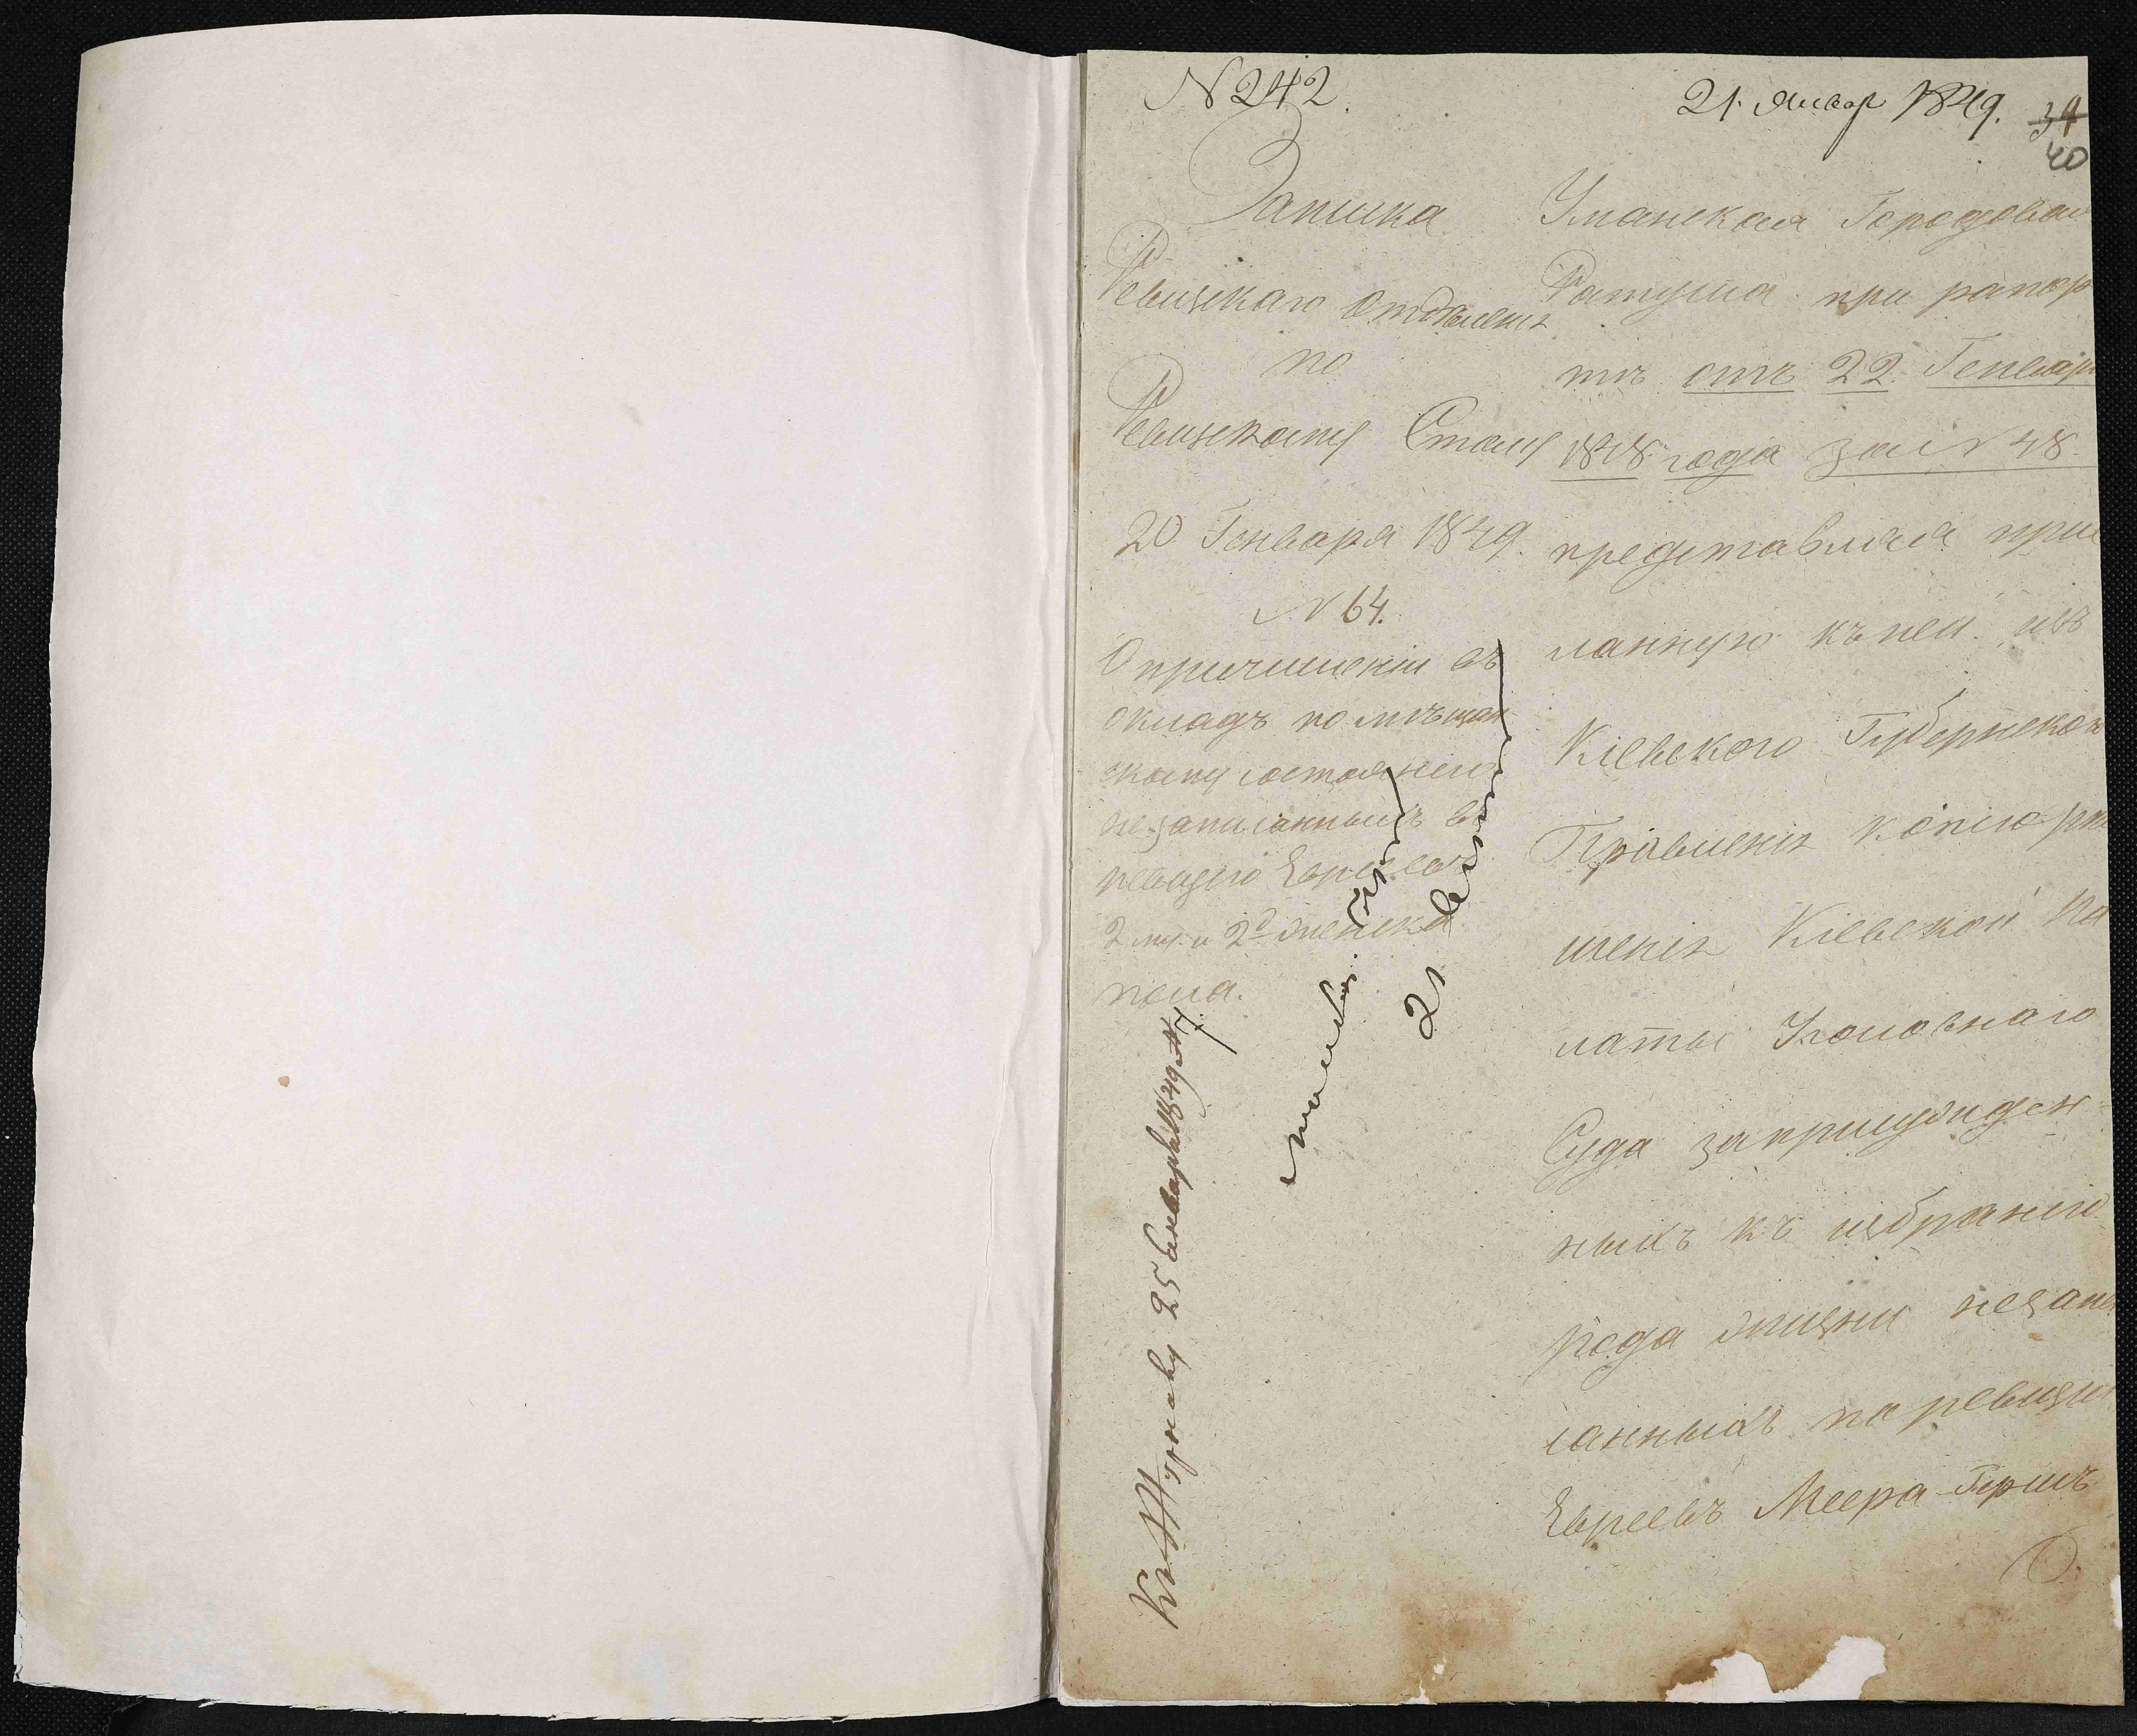 N 242.
21. Январ 1849.
34
40
Записка
Ревизкаго Отделения
по
Ревизскому Столу
20 Генваря 1849.
N 64.
О причислении въ
окладъ по мѣщан
скому состоянию
незаписанныхъ въ
ревизию Евреевъ
2 му. и 2д женска
пола.
21
Къ Журналу 25 Января 1849 №
7.
Уманская Городовая
Ратуша при рапор
тѣ отъ 22 Генвар
1848 года за N 48.
представляла при
ланную къ ней изъ
Киевского Губернскаго
Правления копию рѣ
шения Киевской Па
латы Уголовнаго
Суда запринужден
ныхъ къ избранию
рода жизни незапи
санныхъ по ревизии
Евреевъ Меера-Гершъ